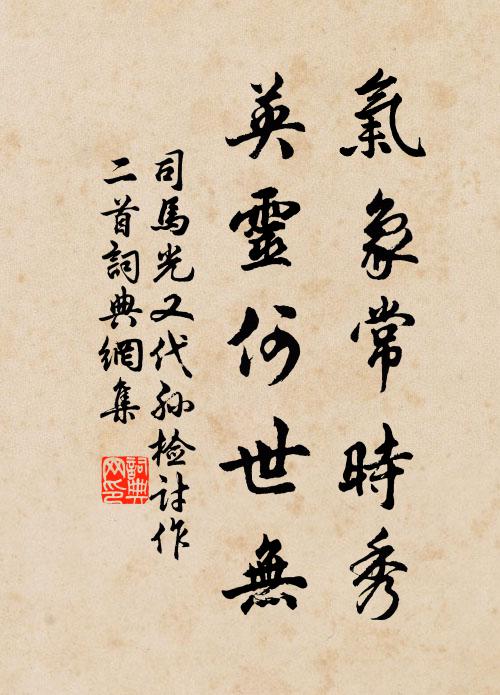 氣象常時秀
英靈何世無
司馬光又代孙检討作
二首詞典網集
詞典网印